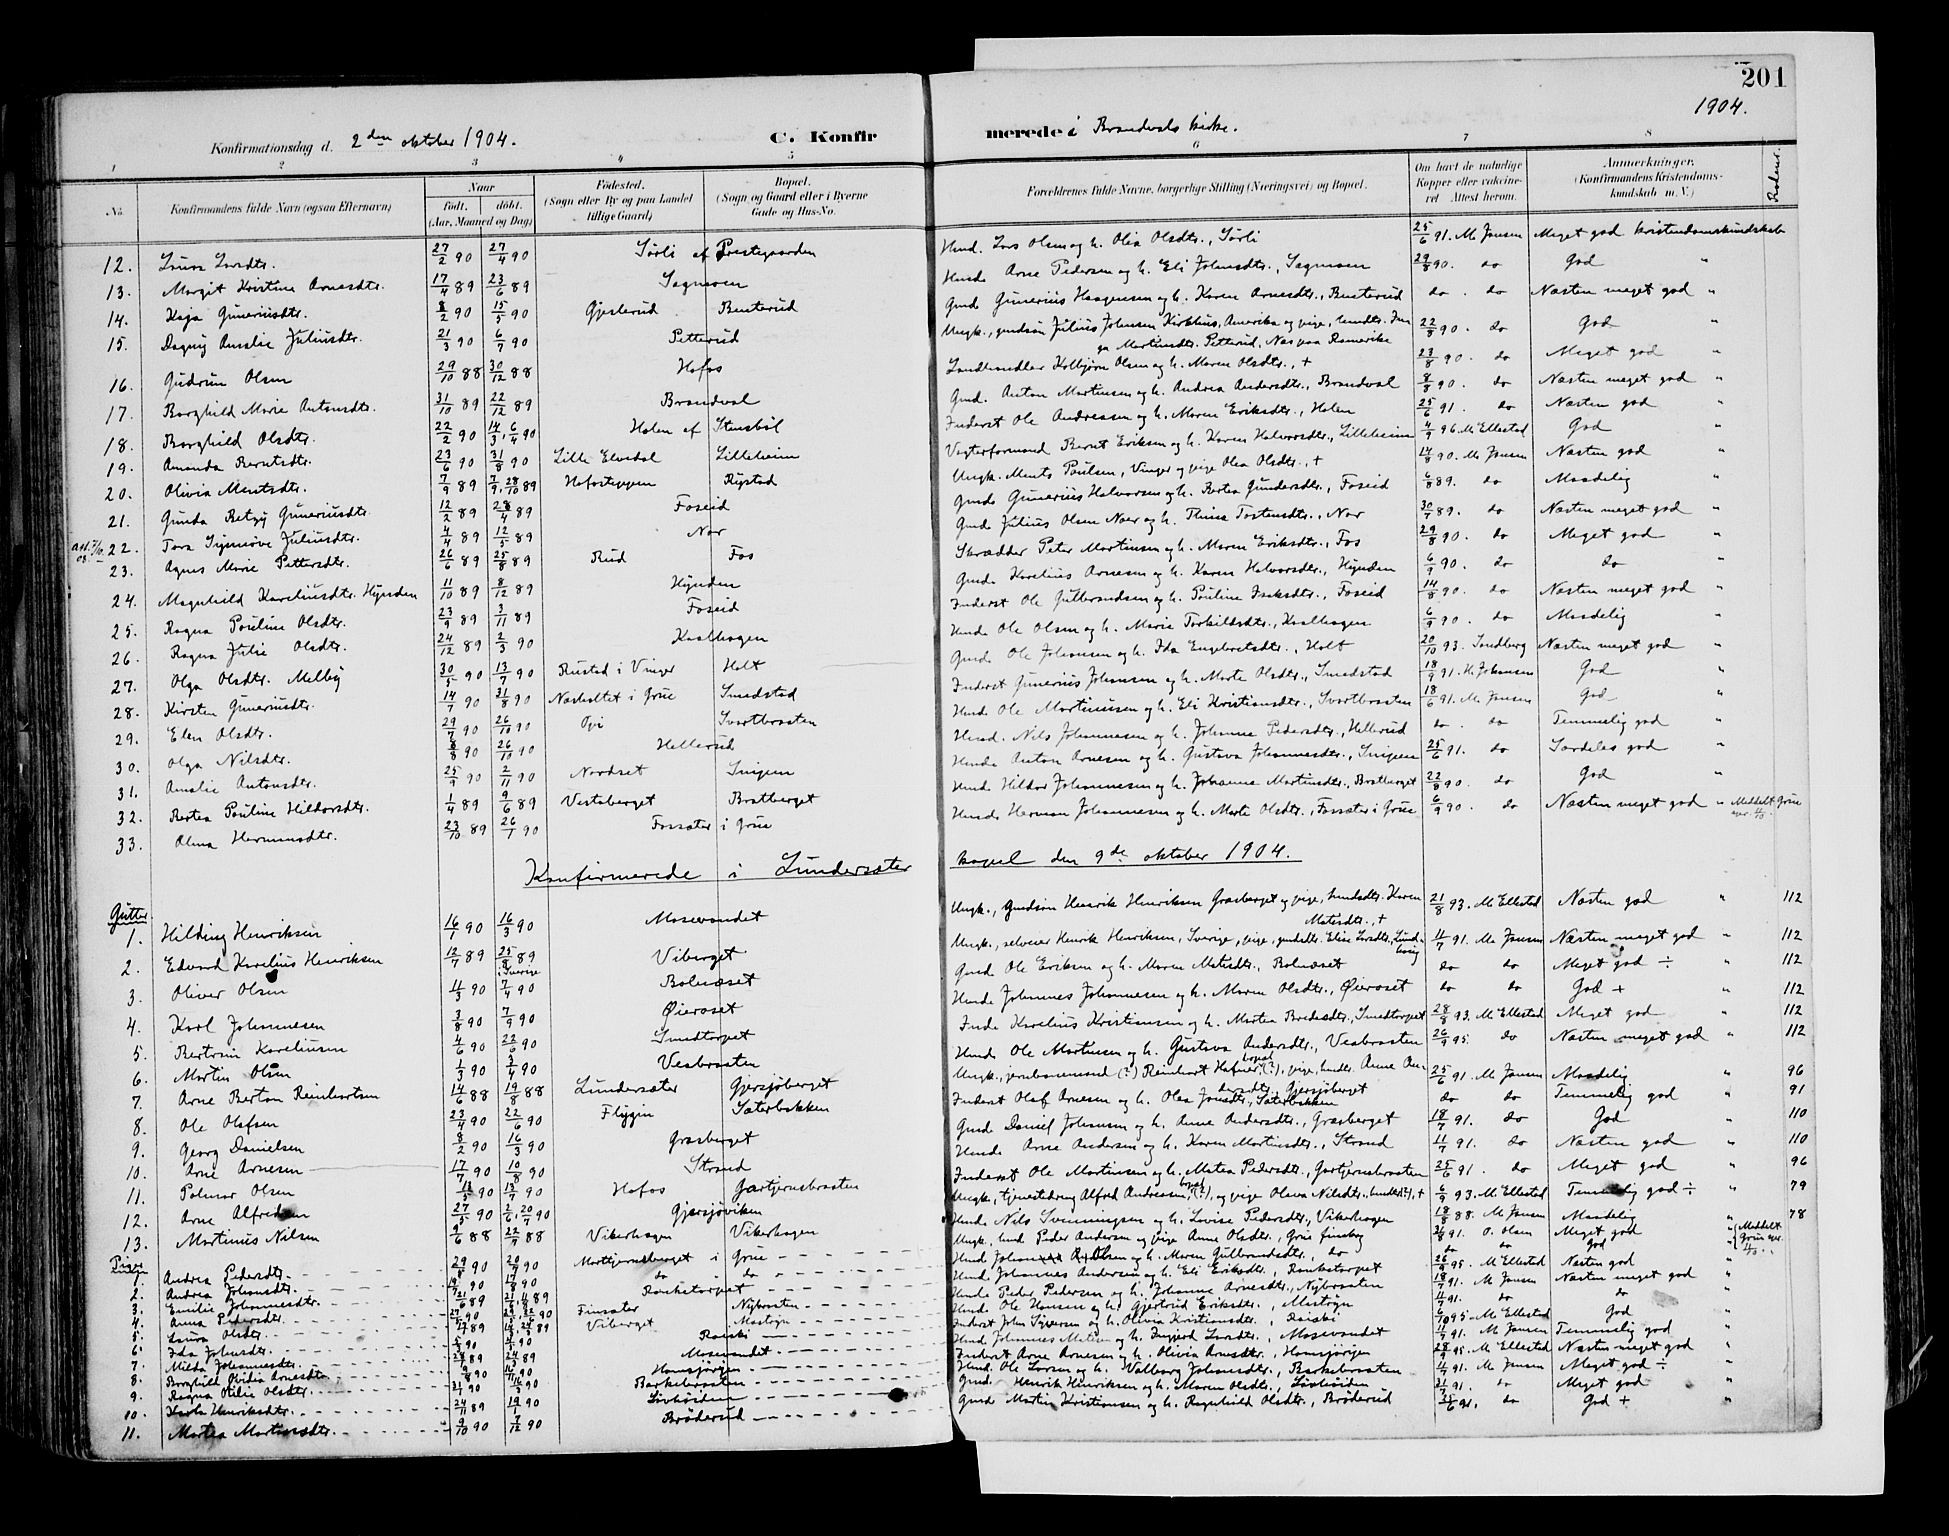 201
1904.
Konfirmationsdag d. 2den oktober 1904. C. Konfirmerede i Brandvals kirke.
1 2 3 4 5 6 7 8
No. Konfirmandens fulde Navn (ogsaa Efternavn) Naar født. døbt. (Aar, Maaned og Dag) Fødested. (Sogn eller By og paa Landet tillige Gaard) Bopæl. (Sogn og Gaard eller i Byerne Gade og Hus-No. Forældrenes fulde Navne, borgerlige Stilling (Næringsvei) og Bopæl. Om havt de naturlige Kopper eller vakcineret. Attest herom. Anmerkninger. (Konfirmandens Kristendomskundskab m. V.)
12. Laura Larsdtr. 27/2 90 27/4 90 Sørli af Prestegaarden Husmd. Lars Olsen og h. Olia Olsdtr., Sørli 25/6 91. M. Jansen Meget god kristendomskundskab
13. Margit Kristine Arnesdtr. 17/4 89 23/6 89 Sagmoen Husmd. Arne Pedersen og h. Eli Johnsdtr., Sagmoen 29/8 90. do God "
14. Kaja Guneriusdtr. 8/2 90 15/5 90 Gjeslerud Benterud Gmd. Gunerius Haagensen og h. Karen Arnesdtr., Benterud do. do Næsten meget god "
15. Dagny Amalie Juliusdtr. 21/3 90 6/7 90 Petterud Ungk., gmdsøn Julius Johnsen Kirkhus, Amerika og pige, hmdtr. Inga Martinsdtr. Petterud, Næs paa Romerike 22/8 90. do God "
16. Gudrun Olsen 29/10 88 30/12 88 Hofos Landhandler Kolbjørn Olsen og h. Maren Olsdtr., + 23/8 90. do Meget god "
17. Borghild Marie Antonsdtr. 31/10 89 22/12 89 Brandval Gmd. Anton Martinsen og h. Andrea Andersdtr., Brandval 8/8 90. do Næsten meget god "
18. Borghild Olsdtr. 22/2 90 14/3, 6/4 90 Holen af Stensbøl Inderst Ole Andreassen og h. Maren Eriksdtr., Holen 25/6 91. do Næsten god "
19. Amanda Berntsdtr. 23/6 90 31/8 90 Lille Elvedal Lilleheim Vogterformand Bernt Eriksen og h. Karen Halvorsdtr., Lilleheim 4/9 96. M. Ellestad God "
20. Olivia Mentsdtr. 7/9 89 7/9, 28/10 89 Hofoseggen Rystad Ungk. Ments Poulsen, Vinger og pige Olea Olsdtr., + 14/8 90. M. Jansen Næsten god "
21. Gunda Betzy Gunerusdtr. 12/2 89 28/4 89 Foseid Gmd. Gunerius Halvorsen og h. Bertea Gundersdtr., Foseid 6/8 89. do Maadelig "
22. Tora Synnøve Juliusdtr. 4/4 89 12/5 89 Nor Gmd. Julius Olsen Noer og h. Thina Tostensdtr., Nor 30/7 89. do Næsten meget god "
23. Agnes Marie Pettersdtr. 26/6 89 25/8 89 Rud Fos Skrædder Peter Martinsen og h. Maren Eriksdtr., Fos 29/8 90. do Meget god "
24. Magnhild Kareliusdtr. Hynden 11/10 89 8/12 89 Hynden Gmd. Karelius Arnesen og h. Karen Halvorsdtr., Hynden 6/9 90. do do "
25. Ragna Pouline Olsdtr. 23/9 89 3/11 89 Foseid Inderst Ole Gulbrandsen og h. Pouline Isaksdtr., Foseid 14/8 90. do Næsten meget god "
26. Ragna Julie Olsdtr. 24/12 89 2/3 90 Kaalhagen Husmd. Ole Olsen og h. Marie Torkildsdtr., Kaalhagen 6/9 90. do Maadelig "
27. Olga Olsdtr. Melby 30/5 90 13/7 90 Rustad i Vinger Holt Gmd. Ole Johansen og h. Ida Engebretsdtr., Holt 20/10 93. Sandberg Næsten meget god "
28. Kirsten Guneriusdtr. 14/7 90 31/8 90 Næsholtet i Grue Smedstad Inderst Gunerius Johansen og h. Marte Olsdtr., Smedstad 18/9 91. H. Johansen God "
29. Elen Olsdtr. 29/7 90 26/10 90 Opi Svartbraaten Husmd. Ole Martinusen og h. Eli Kristiansdtr., Svartbraaten 18/6 91. M. Jansen God "
30. Olga Nilsdtr. 8/8 90 26/10 90 Hellerud Husmd. Nils Johannesen og h. Johanne Pedersdtr., Hellerud do. do Temmelig god "
31. Amalie Antonsdtr. 25/9 90 2/11 90 Nordset Snigen Husmd. Anton Arnesen og h. Gustava Johannesdtr., Snigen 25/6 91. do Særdeles god "
32. Bertea Pouline Hildorsdtr. 1/4 89 9/6 89 Vestaberget Bratberget Husmd. Hildor Johannesen og h. Johanne Martinsdtr., Bratberget 22/8 90. do God "
33. Alma Hermansdtr. 23/10 89 26/1 90 Fossæter i Grue Husmd. Herman Johannesen og h. Marte Olsdtr., Fossæter i Grue 6/9 90. do Næsten meget god " Meddelt Grue
Konfirmerede i Lundersæter kapel den 9de oktober 1904.
Gutter
1. Hilding Henriksen 16/1 90 16/3 90 Mosevandet Ungk., gmdsøn Henrik Henriksen Græsberget og pige, hmdsdtr. Karen Matisdtr., + 21/8 93. M. Ellestad Næsten god " 112
2. Edvard Karelius Henriksen 12/7 89 25/8 89 i Sverige Viberget Ungk., selveier Henrik Henriksen, Sverige, pige, gmdsdtr. Elise Larsdtr., 11/7 91. M. Jansen Næsten meget god " 112
3. Oliver Olsen 11/3 90 7/4 90 Bolnæset Gmd. Ole Eriksen og h. Maren Matisdtr., Bolnæset do do Meget god ÷ " 112
4. Karl Johannesen 3/8 90 7/9 90 Øieraset Husmd. Johannes Johannesen og h. Maren Olsdtr., Øieroset do do God + " 112
5. Bertinus Kareliusen 4/6 90 22/6 90 Smedtorpet Inds. Karelius Kristiansen og h. Martea Bredesdtr., Smedtorpet 28/8 93. M. Ellestad Meget god " 112
6. Martin Olsen 1/3 90 3/4 90 Vesbraaten Husmd. Ole Martinsen og h. Gustava Andersdtr., Vesbraaten 26/9 95. do Næsten meget god " 112
7. Arne Bertan Reinhartsen 14/6 88 19/8 88 Lundersæter Gjersjøberget Ungk., jernbanemand (?) Reinhart Hafner (?), pige, hmdtr. Anne Andersdtr., Gjersjøberget 25/6 91. M. Jansen Maadelig " 96
8. Ole Olafsen 23/4 90 22/6 90 Flyggen Sæterbakken Inderst Olaf Arnesen og h. Olea Jonsdtr., Sæterbakken do do Temmelig god " 91
9. Georg Danielsen 8/2 90 16/3 90 Græsberget Gmd. Daniel Johansen og h. Anne Andersdtr., Græsberget 18/7 91. do God " 110
10. Arne Arnesen 17/7 90 10/8 90 Strand Husmd. Arne Andersen og h. Karen Martinsdtr., Strand 11/7 91. do Næsten god " 110
11. Palmar Olsen 13/5 90 13/7 90 Hofos Gartjernsbraaten Inderst Ole Martinsen og h. Matea Pedersdtr., Gartjernsbraaten 25/6 91. do Meget god " 96
12. Arne Alfredsen 27/5 90 2/6, 20/7 90 Gjersjøviken Ungk., tjenestedreng Alfred Andreassen, (?), og pige Oleva Nilsdtr., + 1/9 93. M. Ellestad Temmelig god ÷ " 79
13. Martinus Nilsen 9/6 88 22/7 88 Vikerhagen Vikerhagen Husmd. Nils Svenningsen og h. Lovise Pedersdtr., Vikerhagen 18/8 88. M. Jansen Maadelig " 78
Piger
1. Andrea Pedersdtr. 29/8 90 20/7 90 Mortjernsberget i Grue Ungk., hmd. Peder Andersen og pige Anne Olsdtr., Grue finskog 26/8 91. O. Olsen Meget god " Meddelt Grue
2. Andrea Johansdtr. 90 17/8 90 do do Husmd. Johan Olsen og h. Maren Gulbrandsdtr., do do do God "
3. Emilie Johannesdtr. 89 89 Raasketorpet Husmd. Johannes Andersen og h. Eli Eriksdtr., Raasketorpet 26/9 95. M. Ellestad Næsten god "
4. Anna Pedersdtr. 90 90 Finsæter Nybraaten Husmd. Peder Pedersen og h. Johanne Arnesdtr., Nybraaten 18/7 91. M. Jansen Næsten meget god "
5. Laura Olsdtr. 89 89 Viberget Mastøgn Husmd. Ole Hansen og h. Gjertrud Eriksdtr., Mastøgn 11/7 91. do do "
6. Ida Johnsdtr. 90 90 Raiski Inderst John Syversen og h. Olivia Kristiansdtr., Raiski 6/10 95. M. Ellestad God "
7. Milda Johannesdtr. 89 89 Mosevandet Husmd. Johannes Matisen og h. Ingjerd Larsdtr., Mosevandet 11/7 91. M. Jansen Temmelig god "
8. Borghild Olivia Arnesdtr. 90 90 Homsjørjen Inderst Arne Arnesen og h. Olivia Arnesdtr., Homsjørjen 28/9 95. M. Ellestad Næsten meget god "
9. Ragna Otilie Olsdtr. 90 90 Barkebraaten Husmd. Ole Larsen og h. Valborg Johansdtr., Barkebraaten 11/7 91. M. Jansen Meget god ÷ "
10. Karla Henriksdtr. 24/11 89 19/1 90 Løvhøiden Gmd. Henrik Henriksen og h. Maren Olsdtr., Løvhøiden 21/7 91. do Meget god "
11. Martea Martinsdtr. 9/10 90 7/12 90 Brøderud Gmd. Martin Kristiansen og h. Ragnhild Olsdtr., Brøderud 25/6 91. do God + "